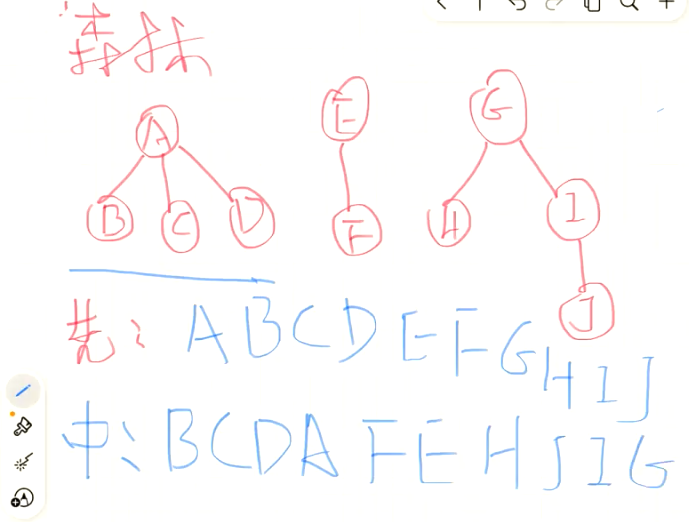 森林
A E G
B C D F H I
J
先: ABCD EF GHIJ
中: BCDA FE HJIG